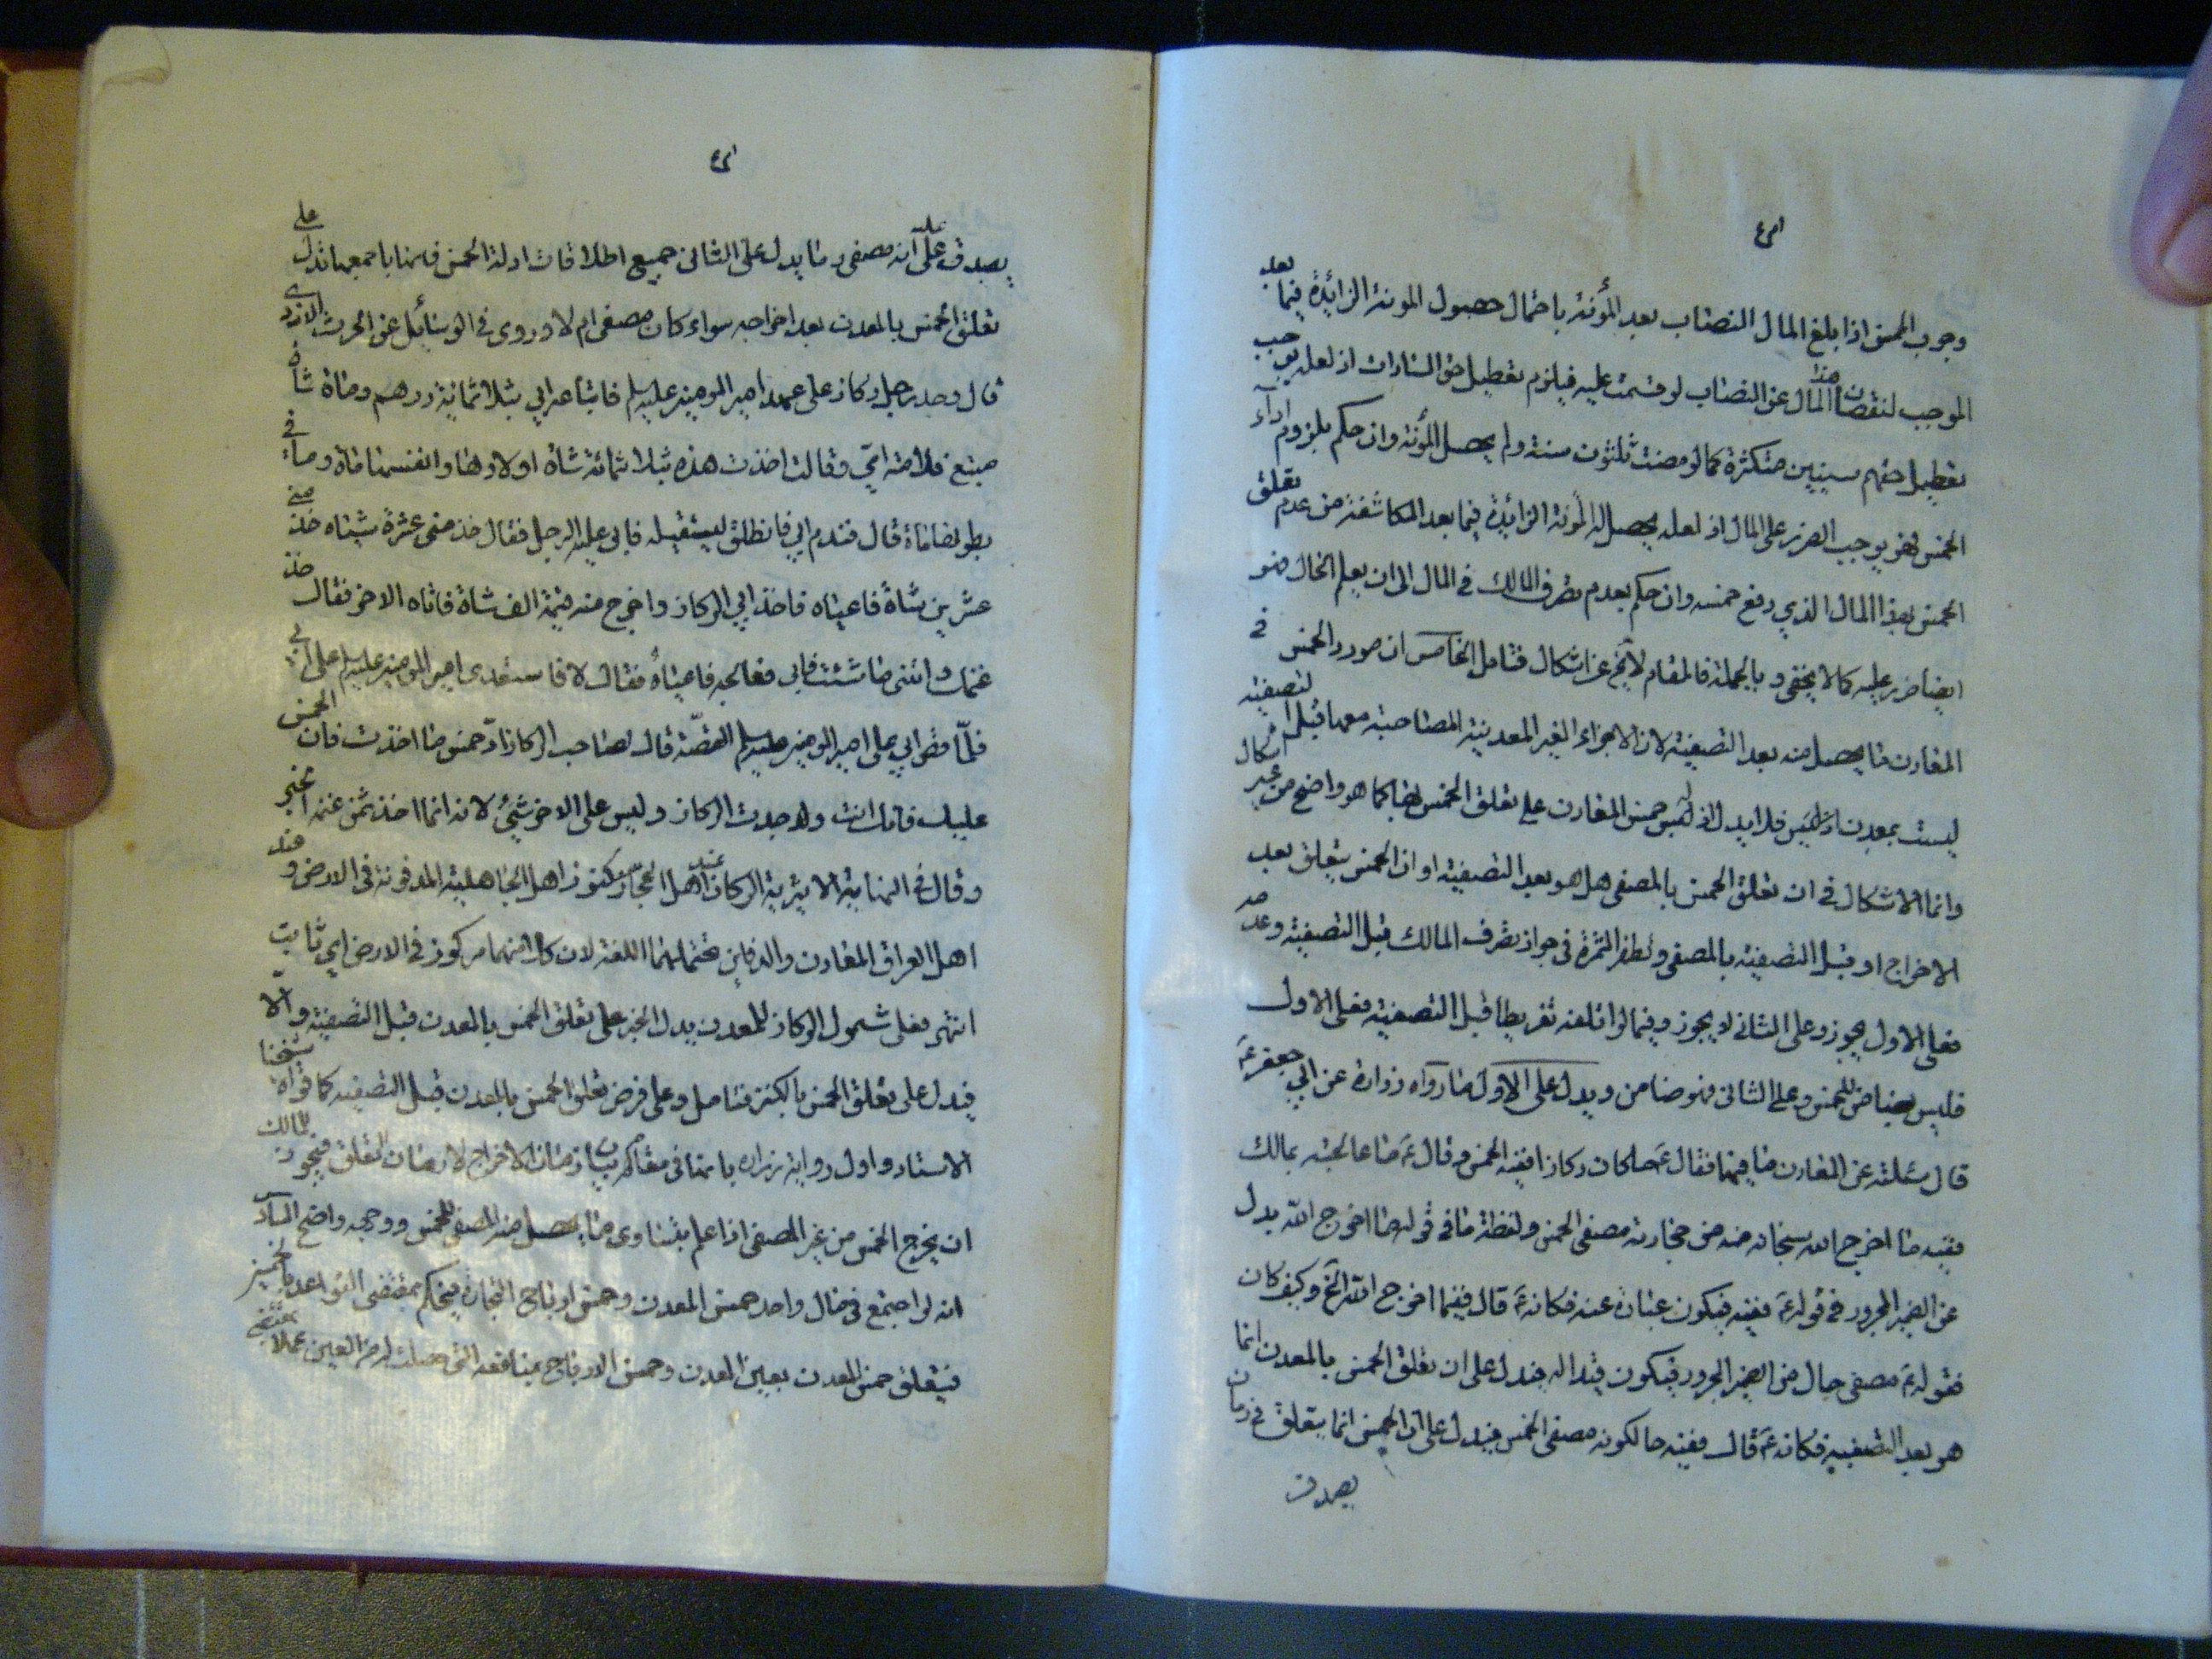 وجوب الخمس اذا بلغ المال النصاب بعد المؤنة باحتمال حصول المونة الزائدة فيما بعد
الموجب لنقصان هذا المال عن النصاب لو قسمت عليه فيلزم تعطيل حق السادات اذ لعله يوجب
تعطيل حقهم سنين متكثرة كما لو مضت ثلثون سنة ولم يحصل المؤنة وان حكم بلزوم اداء
الخمس فهو يوجب الضرر على المال اذ لعله يحصل له المؤنة الزائدة فيما بعد الكاشفة من عدم تعلق
الخمس بهذا المال الذي دفع خمسه وان حكم بعدم تصرف المالك في المال الى ان يعلم الحال فهو
ايضا ضرر عليه كما لا يخفى و بالجملة فالمقام لا يخ عن اشكال فتامل الخامس ان مورد الخمس في
المعادن ما يحصل منه بعد التصفية لان الاجزاء الغير المعدنية المصاحبة معها قبل التصفية
ليست بمعدن فلا يدل ادلة خمس المعادن على تعلق الخمس بها كما هو واضح من غير اشكال
وانما الاشكال في ان تعلق الخمس بالمصفى هل هو بعد التصفية او ان الخمس يتعلق بعد
الاخراج او قبل التصفية بالمصفى وتظهر الثمرة في جواز تصرف المالك قبل التصفية وعدمه
فعلى الاول يجوز وعلى الثاني لا يجوز وفيما لو اتلفه تفريطا قبل التصفية فعلى الاول
فليس بضامن للخمس وعلى الثاني فهو ضامن ويدل على الاول ما رواه زرارة عن ابي جعفر ع
قال سئلته عن المعادن ما فيها فقال ع كلما كان ركازا ففيه الخمس وقال ع ما عالجته بمالك
ففيه ما اخرج الله سبحانه منه من حجارته مصفى الخمس ولفظة ما في قوله ما اخرج الله بدل
عن الضمير المجرور في قوله ع ففيه فيكون عبارة عنه فكانه ع قال ففيما اخرج الله الخ وكيف كان
فقوله ع مصفى حال من الضمير المجرور فيكون قيدا له فيدل على ان تعلق الخمس بالمعدن انما
هو بعد التصفية فكانه ع قال ففيه حالكونه مصفى الخمس فيدل على ان الخمس انما يتعلق في زمان
يصدق
يصدق عليه انه مصفى وما يدل على الثاني جميع اطلاقات ادلة الخمس فانها باجمعها تدل على
تعلق الخمس بالمعدن بعد اخراجه سواء كان مصفى ام لا وروى في الوسائل عن الحرث الازدى
قال وجد رجل ركاز على عهد امير المومنين عليه السلم فابتاعه ابي بثلاثمائة درهم ومائة شاة
متبع فلامته امي وقالت اخذت هذه بثلاثمائة شاة اولادها وانفسها مائة وما في
بطونها مائة قال فندم ابي فانطلق ليستقيله فابى عليه الرجل فقال خذ مني عشرة شياه خذ مني
عشرين شاة فاعياه فاخذ ابي الركاز واخرج منه قيمة الف شاة فاتاه الاخر فقال خذ
غنمك وائتني ما شئت فابى فعالجه فاعياه فقال لا فاستعدى امير المومنين عليه السلم على ابي
فلما قص ابي على امير المومنين عليه السلم القصة قال لصاحب الركاز اد خمس ما اخذت فان الخمس
عليك فانك انت وجدت الركاز وليس على الاخر شئ لانه انما اخذ ثمن غنمه الخبر
وقال في النهاية الاثيرية الركاز عند اهل الحجاز كنوز اهل الجاهلية المدفونة في الارض وعند
اهل العراق المعادن والدفاين تحتملهما اللغة لان كلا منهما مركوز في الارض اي ثابت
انتهى فعلى شمول الركاز للمعدن يدل الخبر على تعلق الخمس بالمعدن قبل التصفية والا
فيدل على تعلق الخمس بالكنز فتامل وعلى فرض تعلق الخمس بالمعدن قبل التصفيه كما قواه شيخنا
الاستاد واول رواية زراره بانها في مقام بيان زمان الاخراج لا زمان التعلق فيجوز للمالك
ان يخرج الخمس من غير المصفى اذا علم بتساوى ما يحصل منه المصفى للخمس ووجهه واضح السادس
انه لو اجتمع في مال واحد خمس المعدن وخمس ارباح التجارة فيحكم بمقتضى القواعد بالخمسين
فيتعلق خمس المعدن بعين المعدن وخمس الارباح بمنافعه التي حصلت له من العين عملا بمقتضى